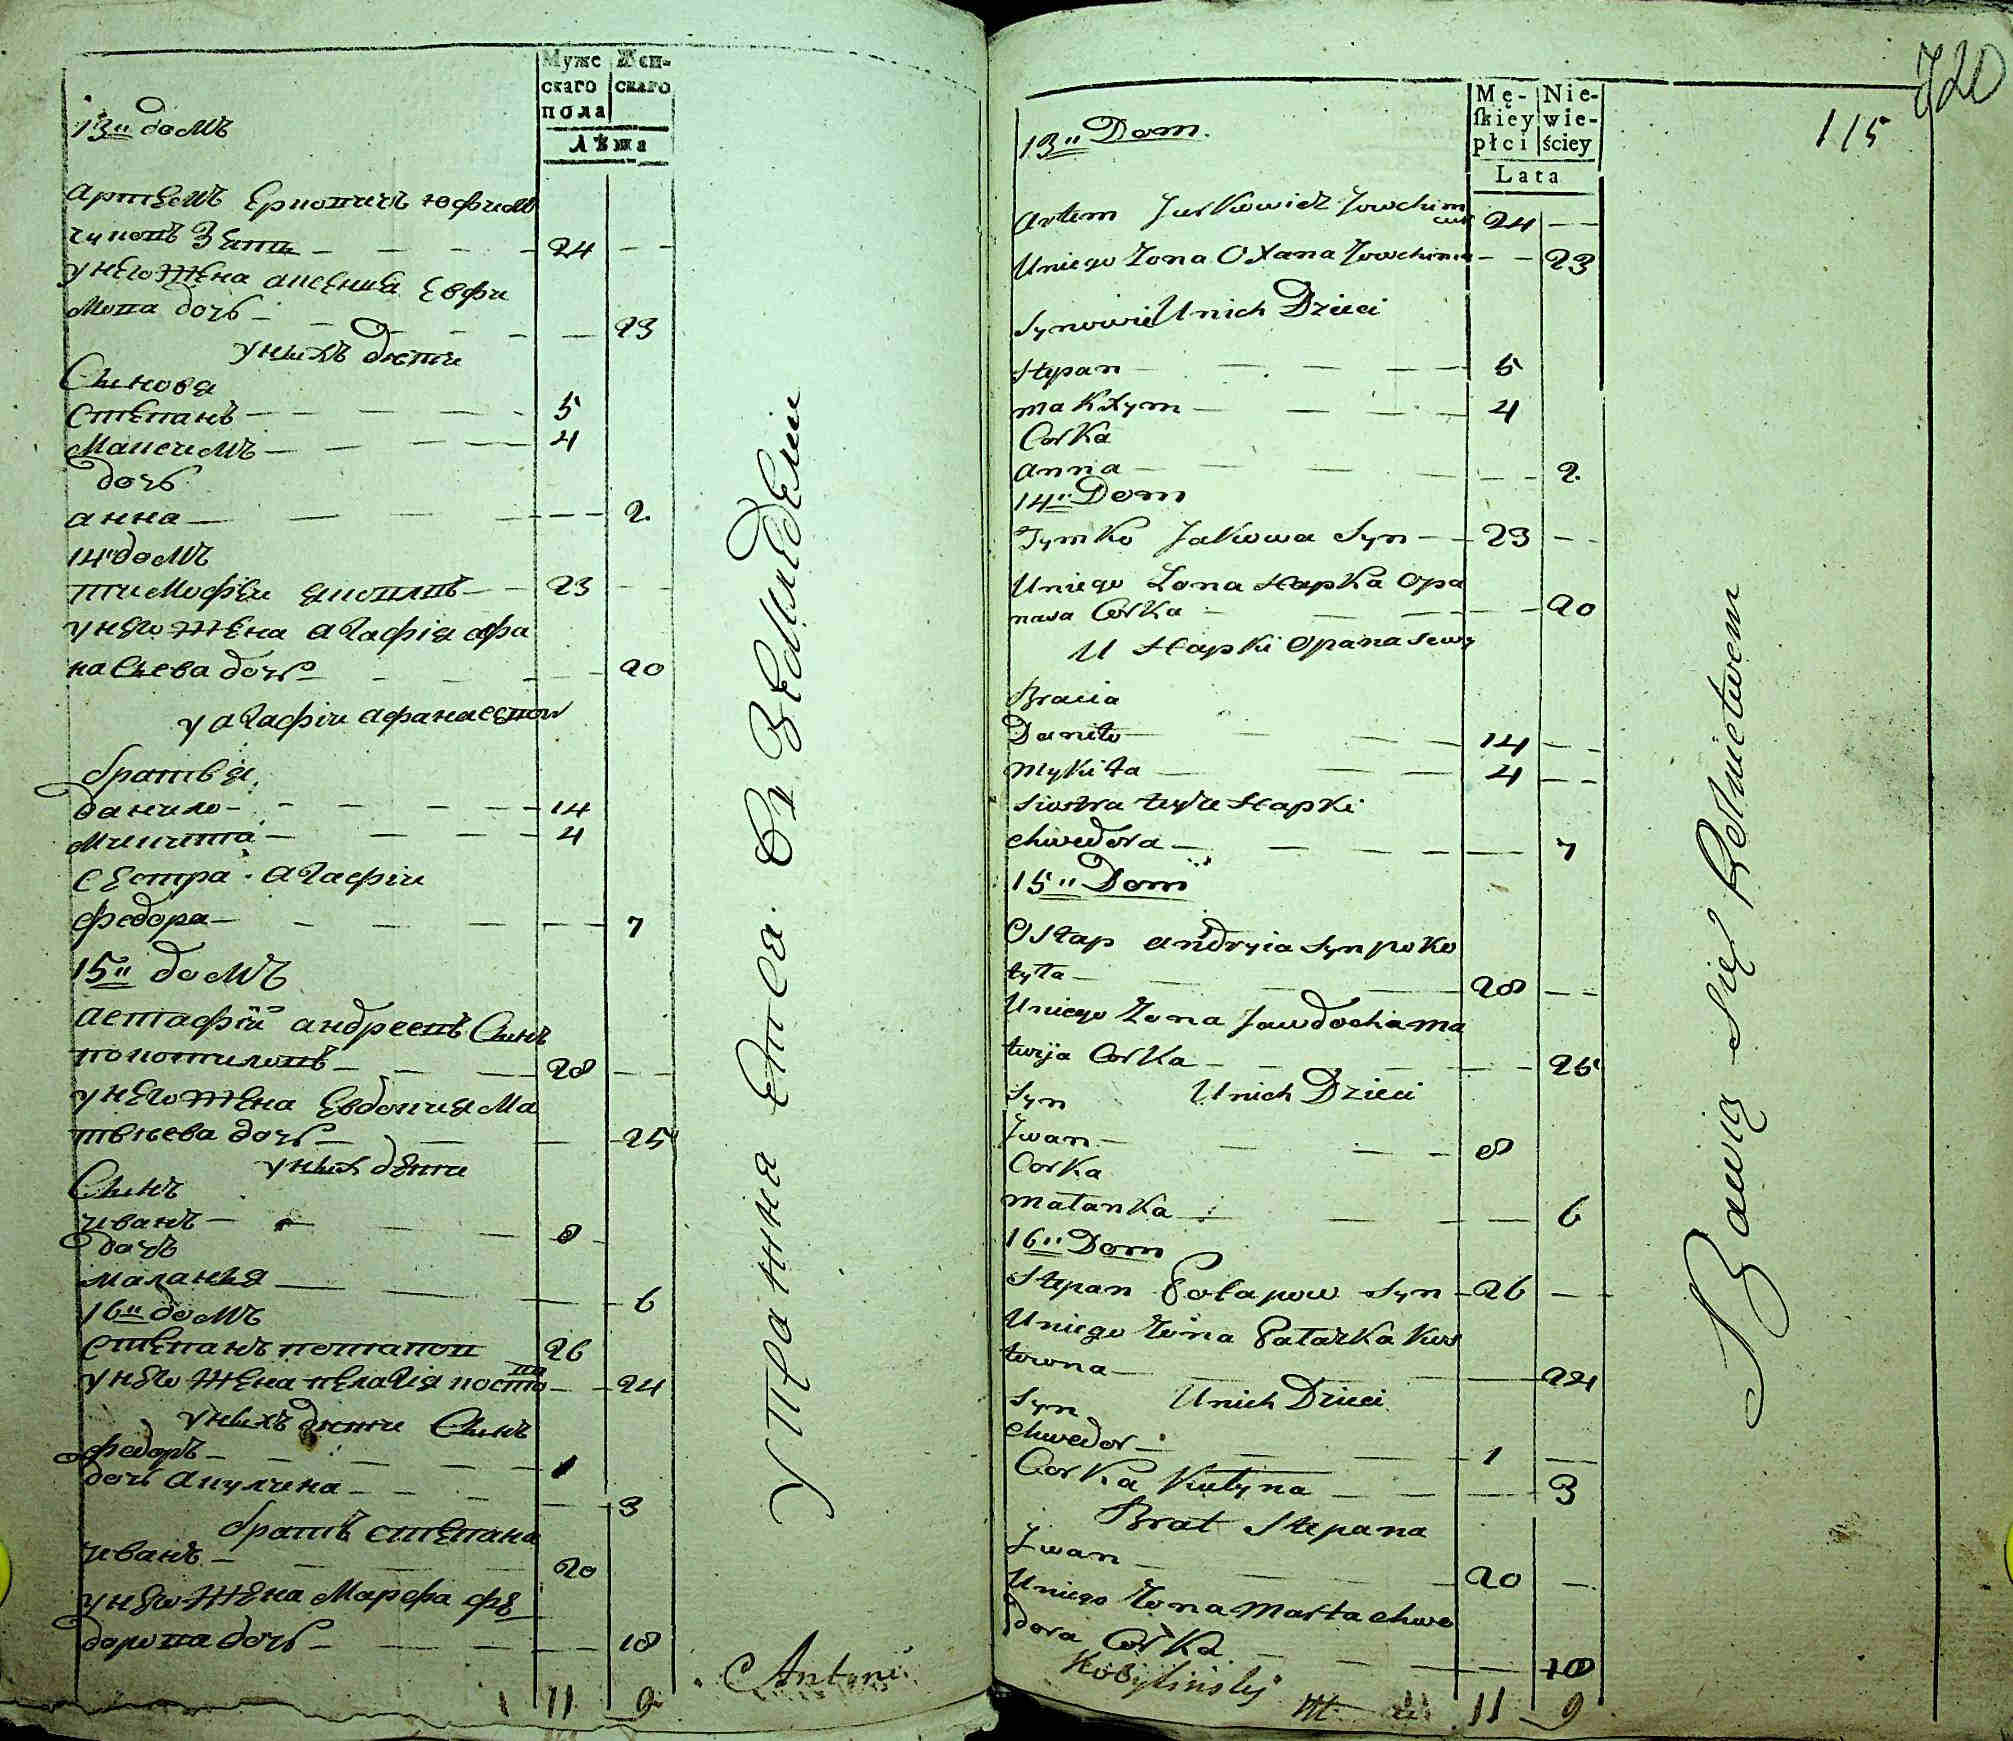 Муже
скаго
пола
Жен-
скаго
Лѣта
13" домъ
24
у него жена Евфи
мова дочь
23
у нихъ дѣти
Сынове
Степанъ 5
Максимъ 4
дочь
анна 2
14" домъ
тимофѣи 23
у него жена агафія афа
насъева дочь 20
у агафіи афанасевои
братья
данило 14
микита 4
сестра агафіи
федора 7
15" домъ
астафіи андреевъ Сынъ
28
у него жена Евдокия Ма
твѣева дочь 25
у нихъ дѣти
Сынъ
иванъ 8
дочь
маланья 6
16" домъ
степанъ потапов 26
у него жена пелагія 24
у нихъ дѣти Сынъ
федоръ 1
дочь акулина 3
братъ степана
иванъ 20
у него жена Марфа фе
дорова дочь 18
11 9
упражняется въ Земледелии
Antoni
720
115
Mę-
skiey
płci
Nie-
wie-
ściey
Lata
13" Dom.
Artem Jurkowicz Jowchim
24
Uniego Zona Oxana 23
Synowie Unich Dzieci
Stepan 5
makxym 4
Corka
anna 2
14" Dom
Tymko Jakowa Syn 23
Uniego Zona Hapka Opa
nasa Corka 20
U Hapki Opanasewy
Bracia
Daniło 14
Mykita 4
Siostra teyże Hapki
chwedora 7
15" Dom
Ostap andryia Syn poko
tyła 28
Uniego Zona Jawdocha ma
twija Corka 25
Syn Unich Dzieci
Jwan 8
Corka
małanka 6
16" Dom
Stepan Potapow Syn 26
Uniego Zona Pałazka
24
Syn Unich Dzieci
chwedor 1
Corka Kulyna 3
Brat Stepana
Jwan 20
Uniego Zona Marta chwe
dora Corka 18
Kobyliński
11 9
Bawią się Rolnictwem